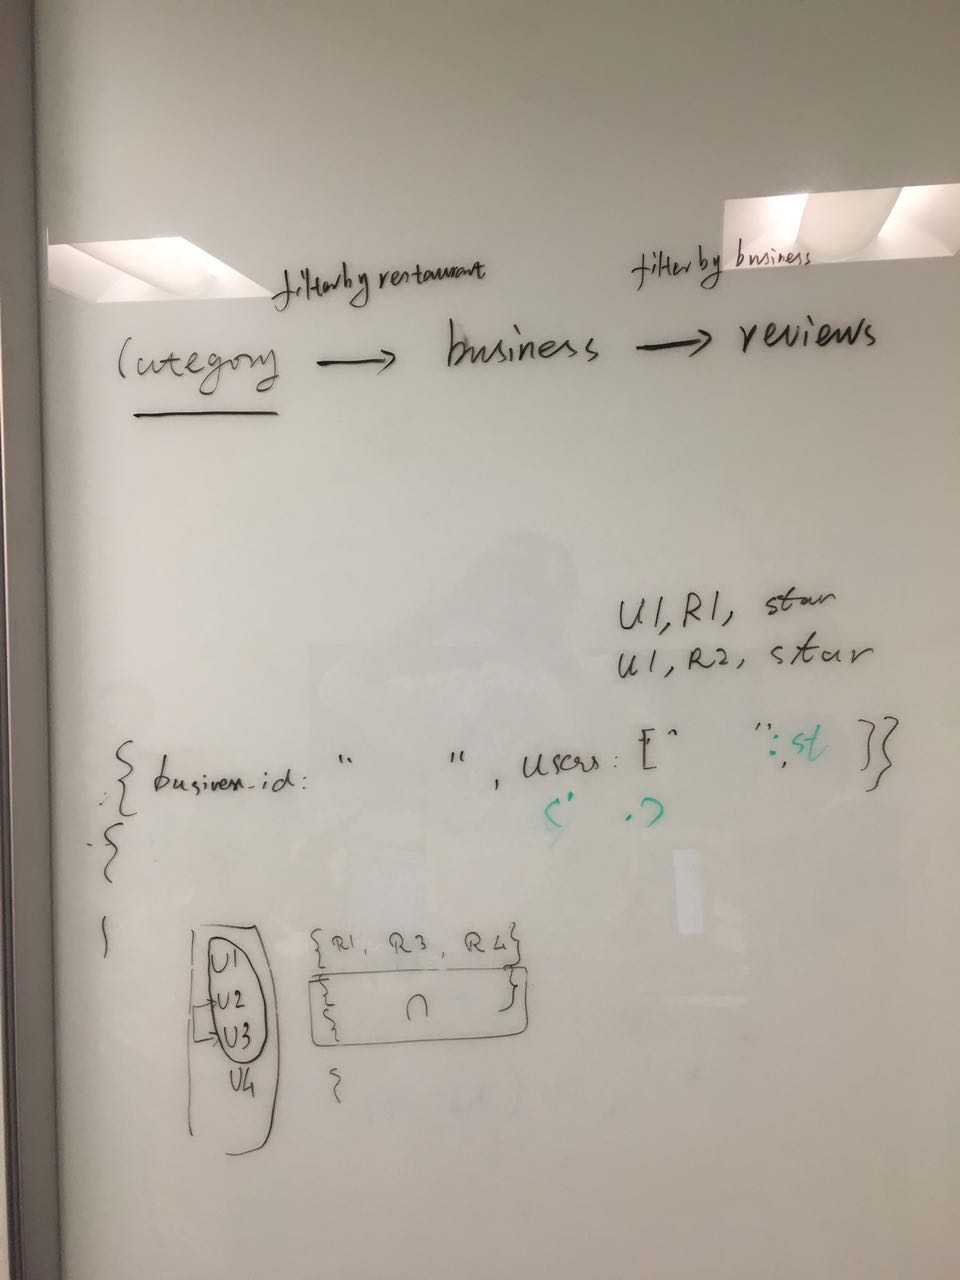 filter by restaurant filter by business
Category → business → reviews
U1, R1, star
U1, R2, star
{ business_id: " ", users: [" ", : st ]}}
{
U1 {R1, R3, R4}
U2 { ∩ }
U3 {
U4 {